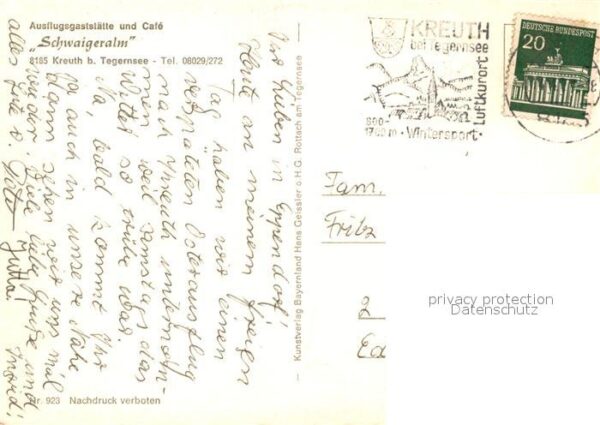 Ausflugsgaststätte und Café
"Schwaigeralm"
8185 Kreuth b. Tegernsee - Tel. 08029/272
Ihr Lieben in Eppendorf!
Heute an meinem freien
Tag haben wir einen
verspäteten Osterausflug
nach Kreuth unternom-
men, weil samstags das
Wetter so trübe war.
Na, bald kommt Ihr
ja auch in unsere Nähe
dann sehen wir uns mal
wieder. Viele liebe Grüße und
alles Gute v. Jutta! Ingrid!
Nr. 923 Nachdruck verboten
Kunstverlag Bayernland Hans Geissler o.H.G. Rottach am Tegernsee
KREUTH
bei Tegernsee
Luftkurort
800-
1700 m · Wintersport ·
DEUTSCHE BUNDESPOST
20
Fam.
Fritz
2
privacy protection
Datenschutz